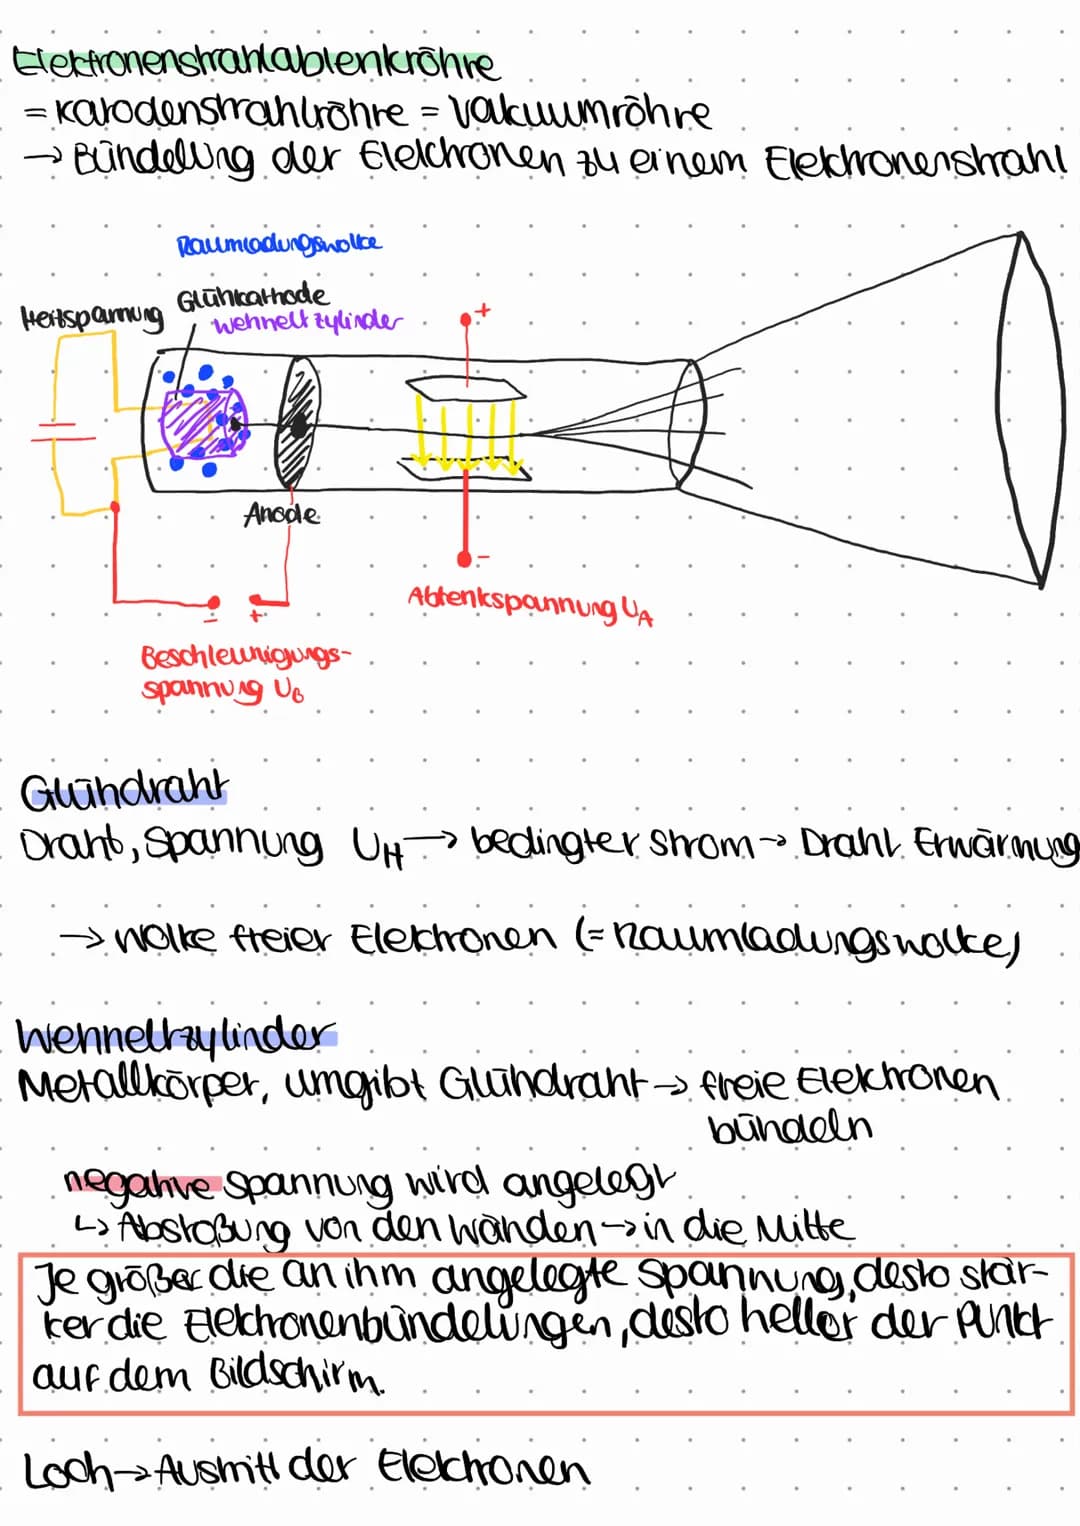 Elektronenstrahlablenkröhre
= Katodenstrahlröhre = Vakuumröhre
→ Bündelung der Elektronen zu einem Elektronenstrahl
Raumladungswolke
Glühkathode
Heitspannung
Wehneltzylinder
+
Anode
-
Ablenkspannung UA
- +
Beschleunigungs-
spannung UB
Glühdraht
Draht, Spannung UH → bedingter Strom → Draht Erwärmung
→ Wolke freier Elektronen (= Raumladungswolke)
Wehneltzylinder
Metallkörper, umgibt Glühdraht → freie Elektronen
bündeln
negative Spannung wird angelegt
↳ Abstoßung von den Wänden → in die Mitte
Je größer die an ihm angelegte Spannung, desto stär-
ker die Elektronenbündelungen, desto heller der Punkt
auf dem Bildschirm.
Loch → Austritt der Elektronen